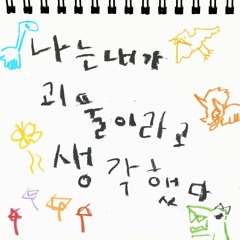 나는 내가
괴물이라고
생각했다